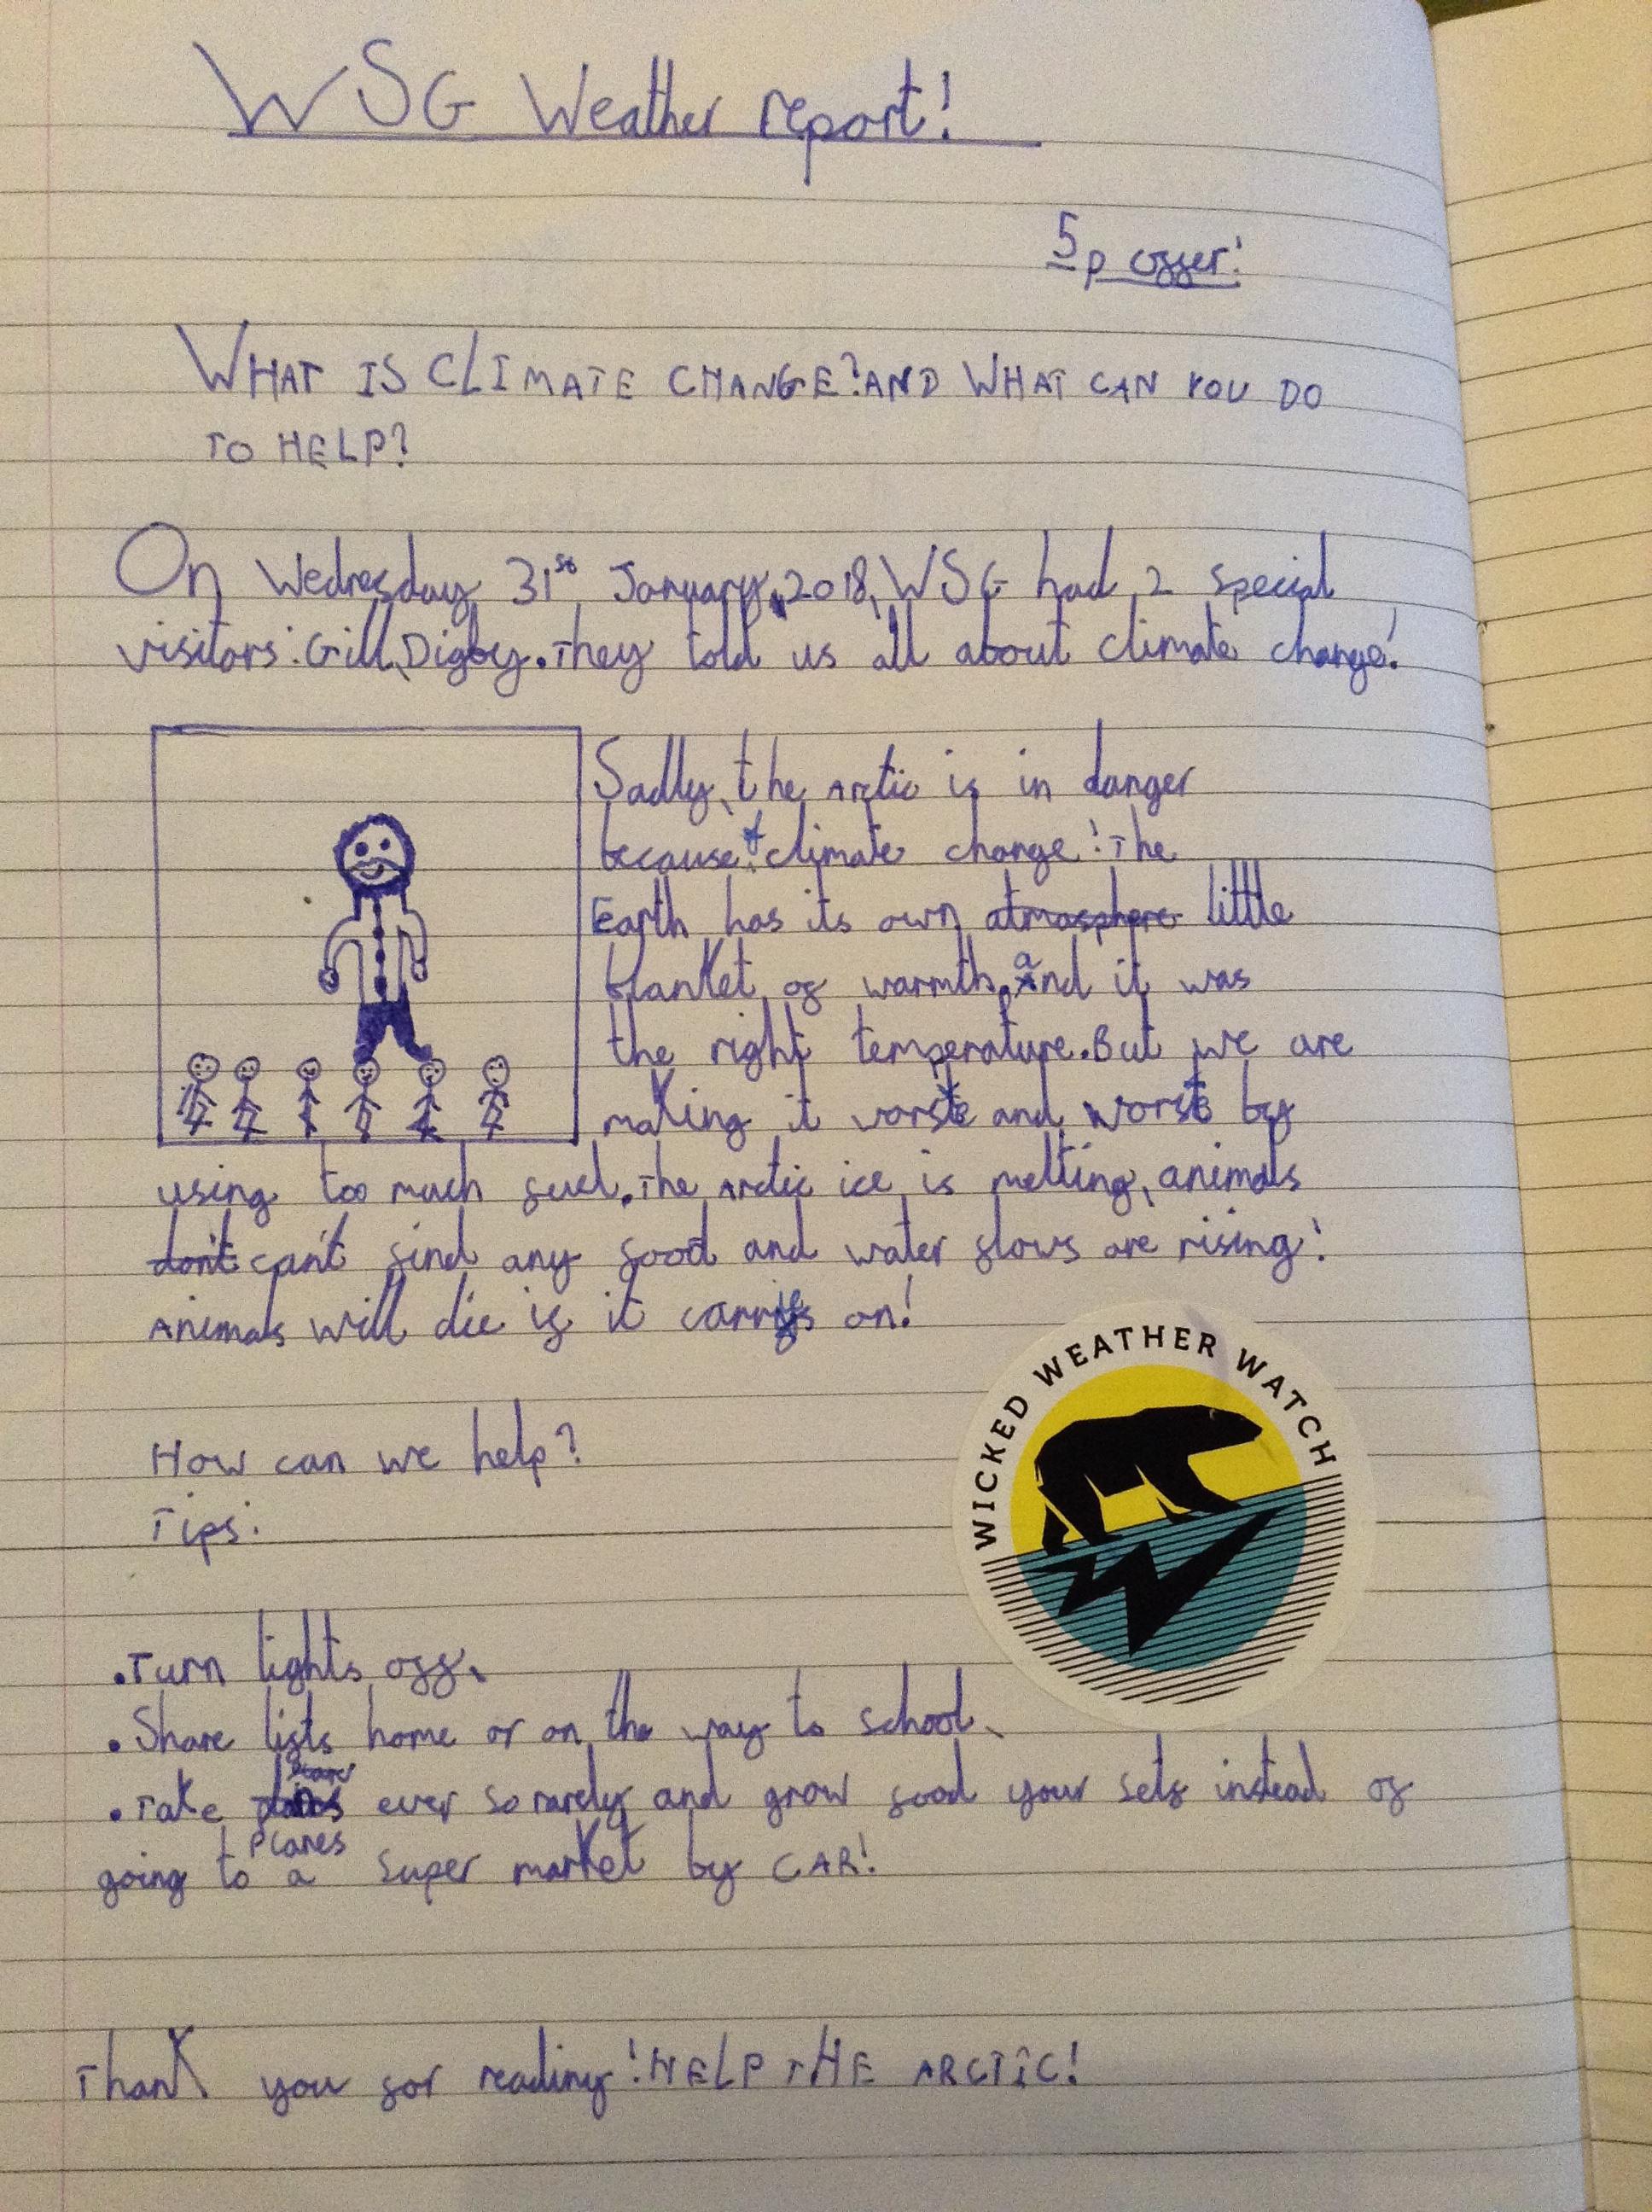 WSG Weather report!
5p offer!
WHAT IS CLIMATE CHANGE? AND WHAT CAN YOU DO
TO HELP?
On Wednesday 31st January, 2018, WSG had 2 special
visitors: Gill, Digby. They told us all about climate change!
Sadly, the Arctic is in danger
because of climate change! The
Earth has its own atmosphere little
blanket of warmth, and it was
the right temperature. But we are
making it worse and worse by
using too much fuel. The Arctic ice is melting, animals
don't can't find any food and water flows are rising!
Animals will die if it carries on!
WICKED WEATHER WATCH
How can we help?
Tips:
• Turn lights off,
• Share lifts home or on the way to school,
• Take planes ever so rarely and grow food your self instead of
going to a super market by CAR!
Thank you for reading! HELP THE ARCTIC!